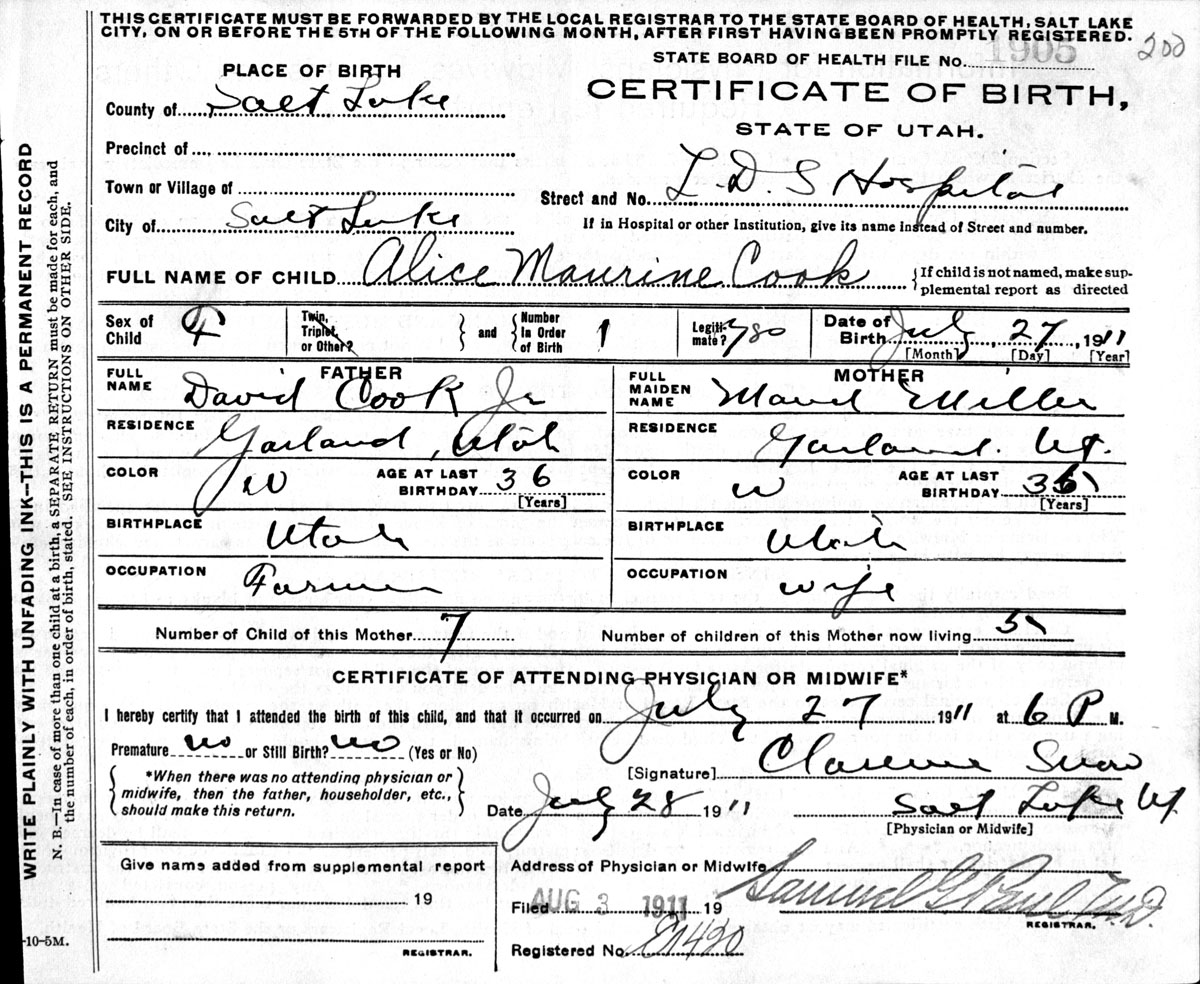 THIS CERTIFICATE MUST BE FORWARDED BY THE LOCAL REGISTRAR TO THE STATE BOARD OF HEALTH, SALT LAKE
CITY, ON OR BEFORE THE 5TH OF THE FOLLOWING MONTH, AFTER FIRST HAVING BEEN PROMPTLY REGISTERED.
200
1905
STATE BOARD OF HEALTH FILE No.
PLACE OF BIRTH
CERTIFICATE OF BIRTH,
STATE OF UTAH.
County of Salt Lake
Precinct of
Town or Village of
Street and No. L. D. S Hospital
City of Salt Lake
If in Hospital or other Institution, give its name instead of Street and number.
FULL NAME OF CHILD Alice Maurine Cook
{If child is not named, make sup-
plemental report as directed
Sex of Child F
Twin, Triplet, or Other? } and { Number in Order of Birth 1
Legiti-mate? yes
Date of Birth July, 27, 1911
[Month] [Day] [Year]
FATHER
FULL NAME David Cook Jr
RESIDENCE Garland, Utah
COLOR W AGE AT LAST BIRTHDAY 36
[Years]
BIRTHPLACE Utah
OCCUPATION Farmer
MOTHER
FULL MAIDEN NAME Maud Miller
RESIDENCE Garland. Ut.
COLOR W AGE AT LAST BIRTHDAY
[Years]
BIRTHPLACE Utah
OCCUPATION Wife
Number of Child of this Mother 7 Number of children of this Mother now living 5
CERTIFICATE OF ATTENDING PHYSICIAN OR MIDWIFE*
I hereby certify that I attended the birth of this child, and that it occurred on July 27 1911 at 6 P M.
Premature no or Still Birth? no (Yes or No)
{*When there was no attending physician or
midwife, then the father, householder, etc.,
should make this return.}
[Signature] Clarence Snow
Date July 28 1911 Salt Lake Ut
[Physician or Midwife]
Give name added from supplemental report
19
REGISTRAR.
Address of Physician or Midwife
Filed AUG 3 1911 19 Samuel G Paul M.D.
REGISTRAR.
Registered No.
-10-5M.
WRITE PLAINLY WITH UNFADING INK—THIS IS A PERMANENT RECORD
N. B.—In case of more than one child at a birth, a SEPARATE RETURN must be made for each, and
the number of each, in order of birth, stated. SEE INSTRUCTIONS ON OTHER SIDE.